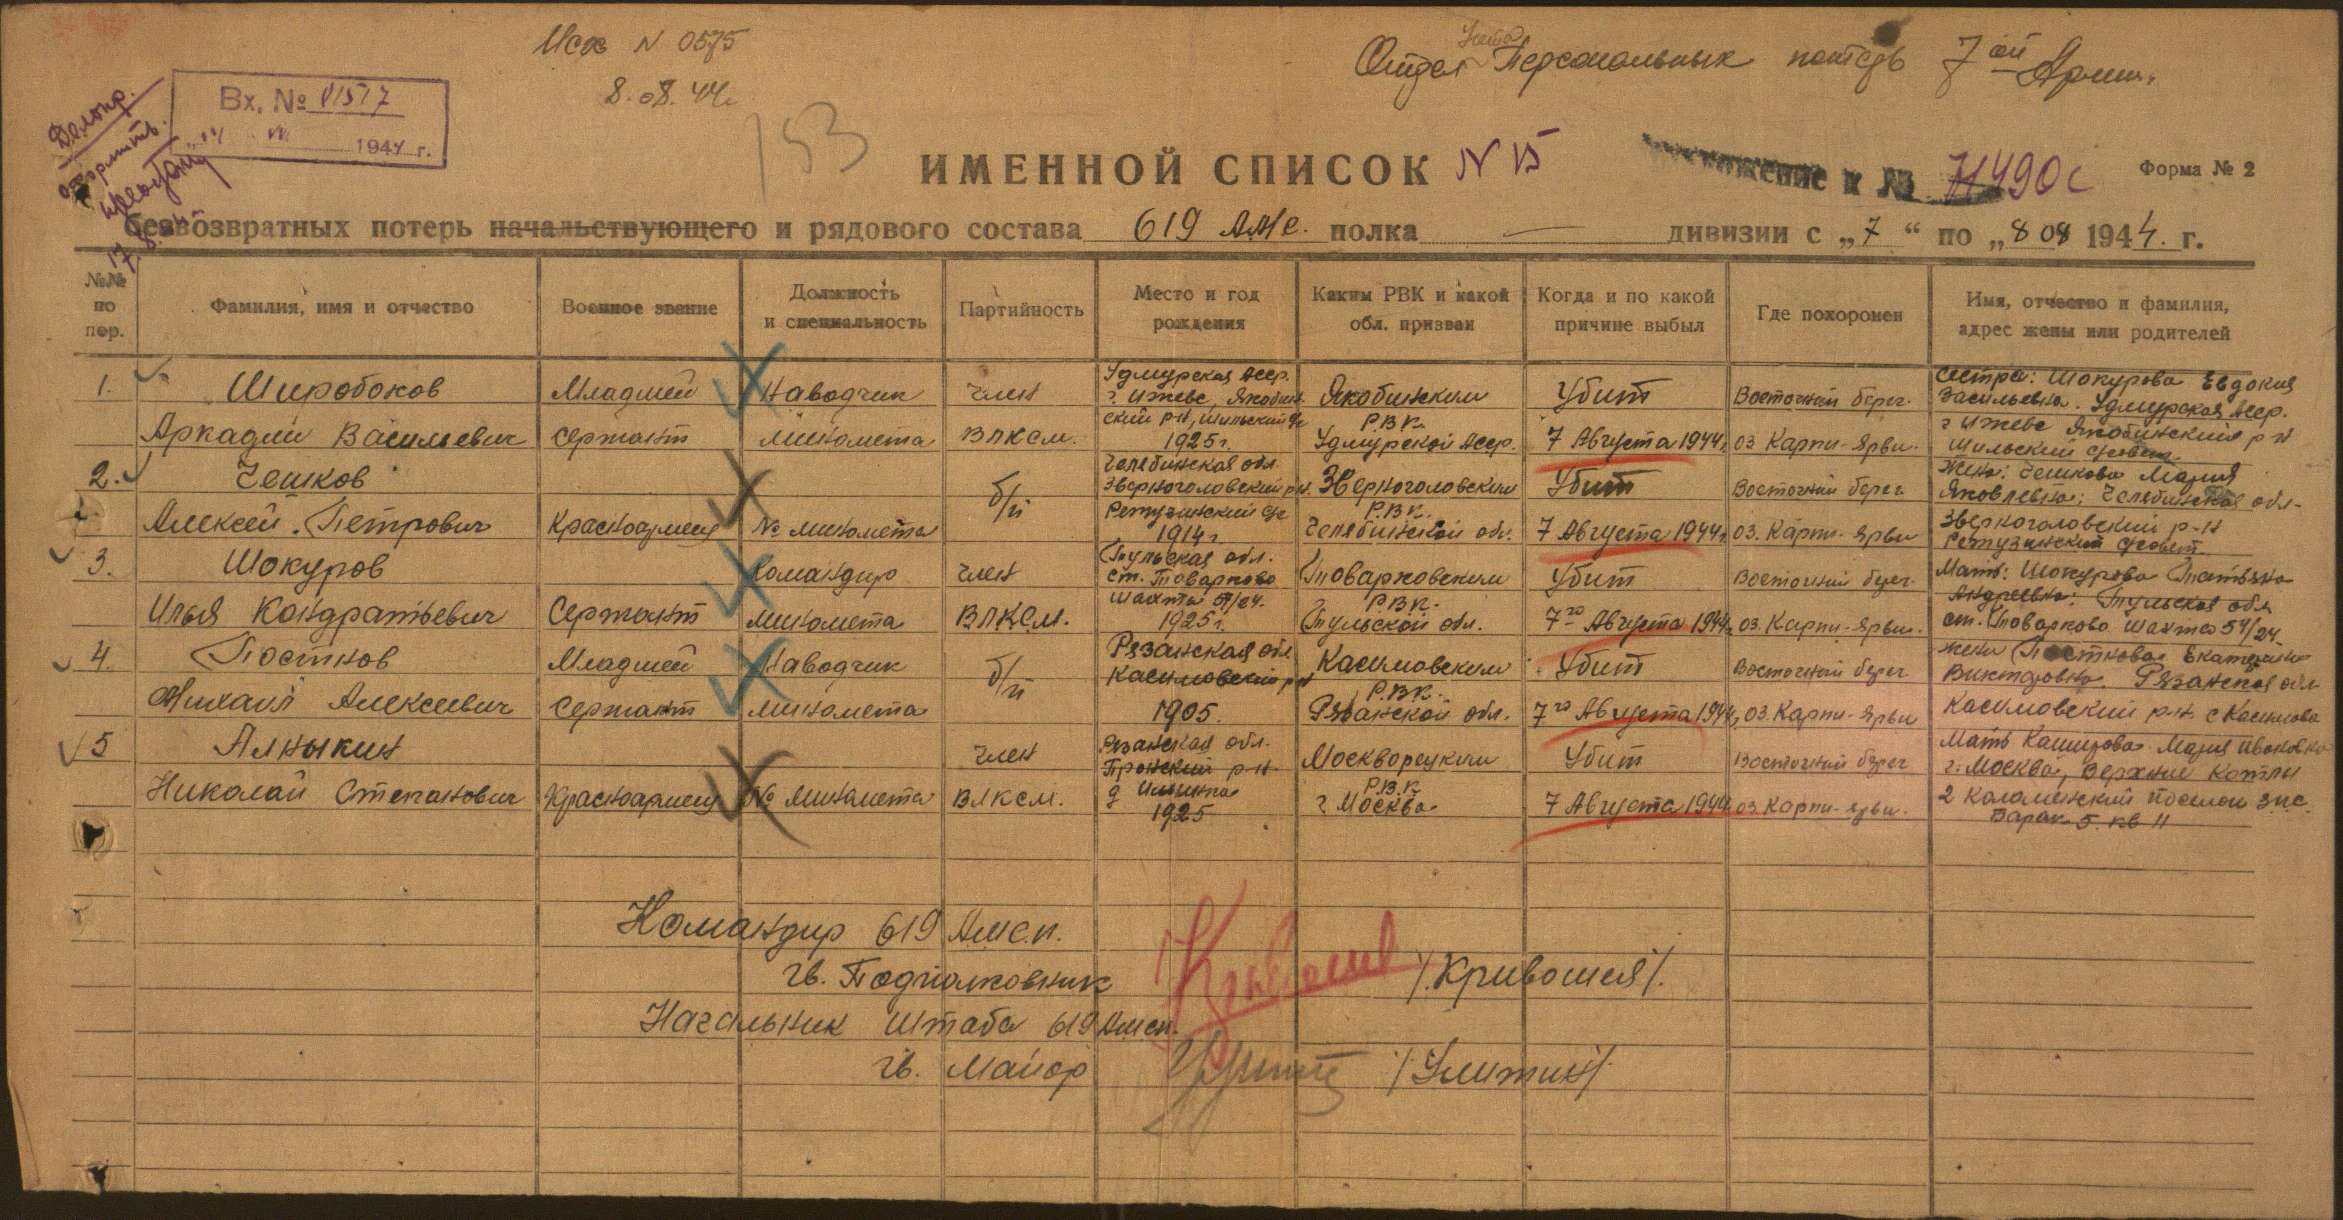 Исх N 0575
8.08.44г.
Отдел учета Персональных потерь 7ой Армии.
Вх. № 01517
1944 г.
Делопр.
153
ИМЕННОЙ СПИСОК N 15
Приложение к № 11490с
Форма № 2
безвозвратных потерь начальствующего и рядового состава 619 Амс. полка — дивизии с „7“ по „8 08 1944. г.
№№ по пор.
Фамилия, имя и отчество
Военное звание
Должность и специальность
Партийность
Место и год рождения
Каким РВК и какой обл. призван
Когда и по какой причине выбыл
Где похоронен
Имя, отчество и фамилия, адрес жены или родителей
1.
Широбоков
Аркадий Васильевич
Младший
сержант
Наводчик
миномета
член
ВЛКСМ.
Удмурская Асср.
г. Ижевс, Якобин
ский р-н, Шильский с/с
1925г.
Якобинским
Р.В.К.
Удмурской Асср.
Убит
7 Августа 1944г.
Восточный берег.
оз Карпи-Ярви.
Сестра: Шокурова Евдокия
Васильевна. Удмурская Асср.
г Ижевс Якобинский р-н
Шильский совет.
2.
Чешков
Алексей Петрович
Красноармеец
№ миномета
б/п
Челебинская обл.
Зверноголовский р-н.
1914г
Зверноголовским
Р.В.К.
Челебинской обл.
Убит
7 Августа 1944г.
Восточный берег
оз. Карпи-Ярви
Жена: Чешкова Мария
Яковлевна; Челебинская обл.
Зверноголовский р-н
3.
Шокуров
Илья Кондратьевич
Сержант
Командир
миномета
член
ВЛКСМ.
Тульская обл.
ст. Товарково
шахта 57/24.
1925г.
Товарковским
Р.В.К.
Тульской обл.
Убит
7го Августа 1944г.
Восточный берег.
оз. Карпи-Ярви.
Мать: Шокурова Татьяна
Андреевна: Тульская обл
ст. Товарково шахта 57/24.
4.
Постнов
Михаил Алексеевич
Младший
Сержант
Наводчик
миномета
б/п
Рязанская обл
Касимовский р-н
1905.
Касимовским
Р.В.К.
Рязанской обл.
Убит
7го Августа 1944г.
Восточный берег
оз. Карпи-Ярви
Жена Постнова Екатерина
Викторовна. Рязанская обл
Касимовский р-н. с Касимова
5
Алныкин
Николай Степанович
Красноармеец
№ миномета
член
ВЛКСМ.
Рязанская обл.
Пронский р-н
1925
Москворецким
Р.В.К.
г Москва
Убит
7 Августа 1944
Восточный берег
оз. Карпи-Ярви.
Мать Каширова Мария Ивановна
г. Москва, Верхние Котлы
2 Коломенский поселок
Барак 5. кв 11
Командир 619 Амсп.
гв. Подполковник /.Кривошея/.
Начальник Штаба 619 Амсп.
гв. Майор /Улитин/